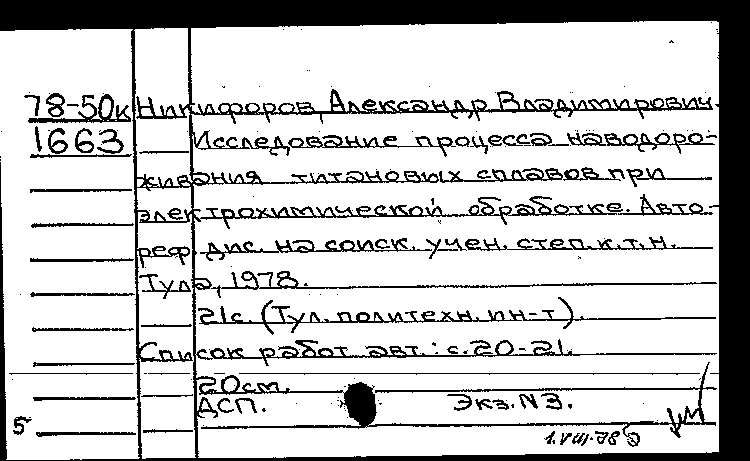 78-50к Никифоров, Александр Владимирович.
1663 Исследование процесса наводоро-
живания титановых сплавов при
электрохимической обработке. Авто-
реф. дис. на соиск. учен. степ. к.т.н.
Тула, 1978.
21с. (Тул. политехн. ин-т).
Список работ авт.: с.20-21.
20см.
ДСП. Экз.N3.
5
1.VIII-78